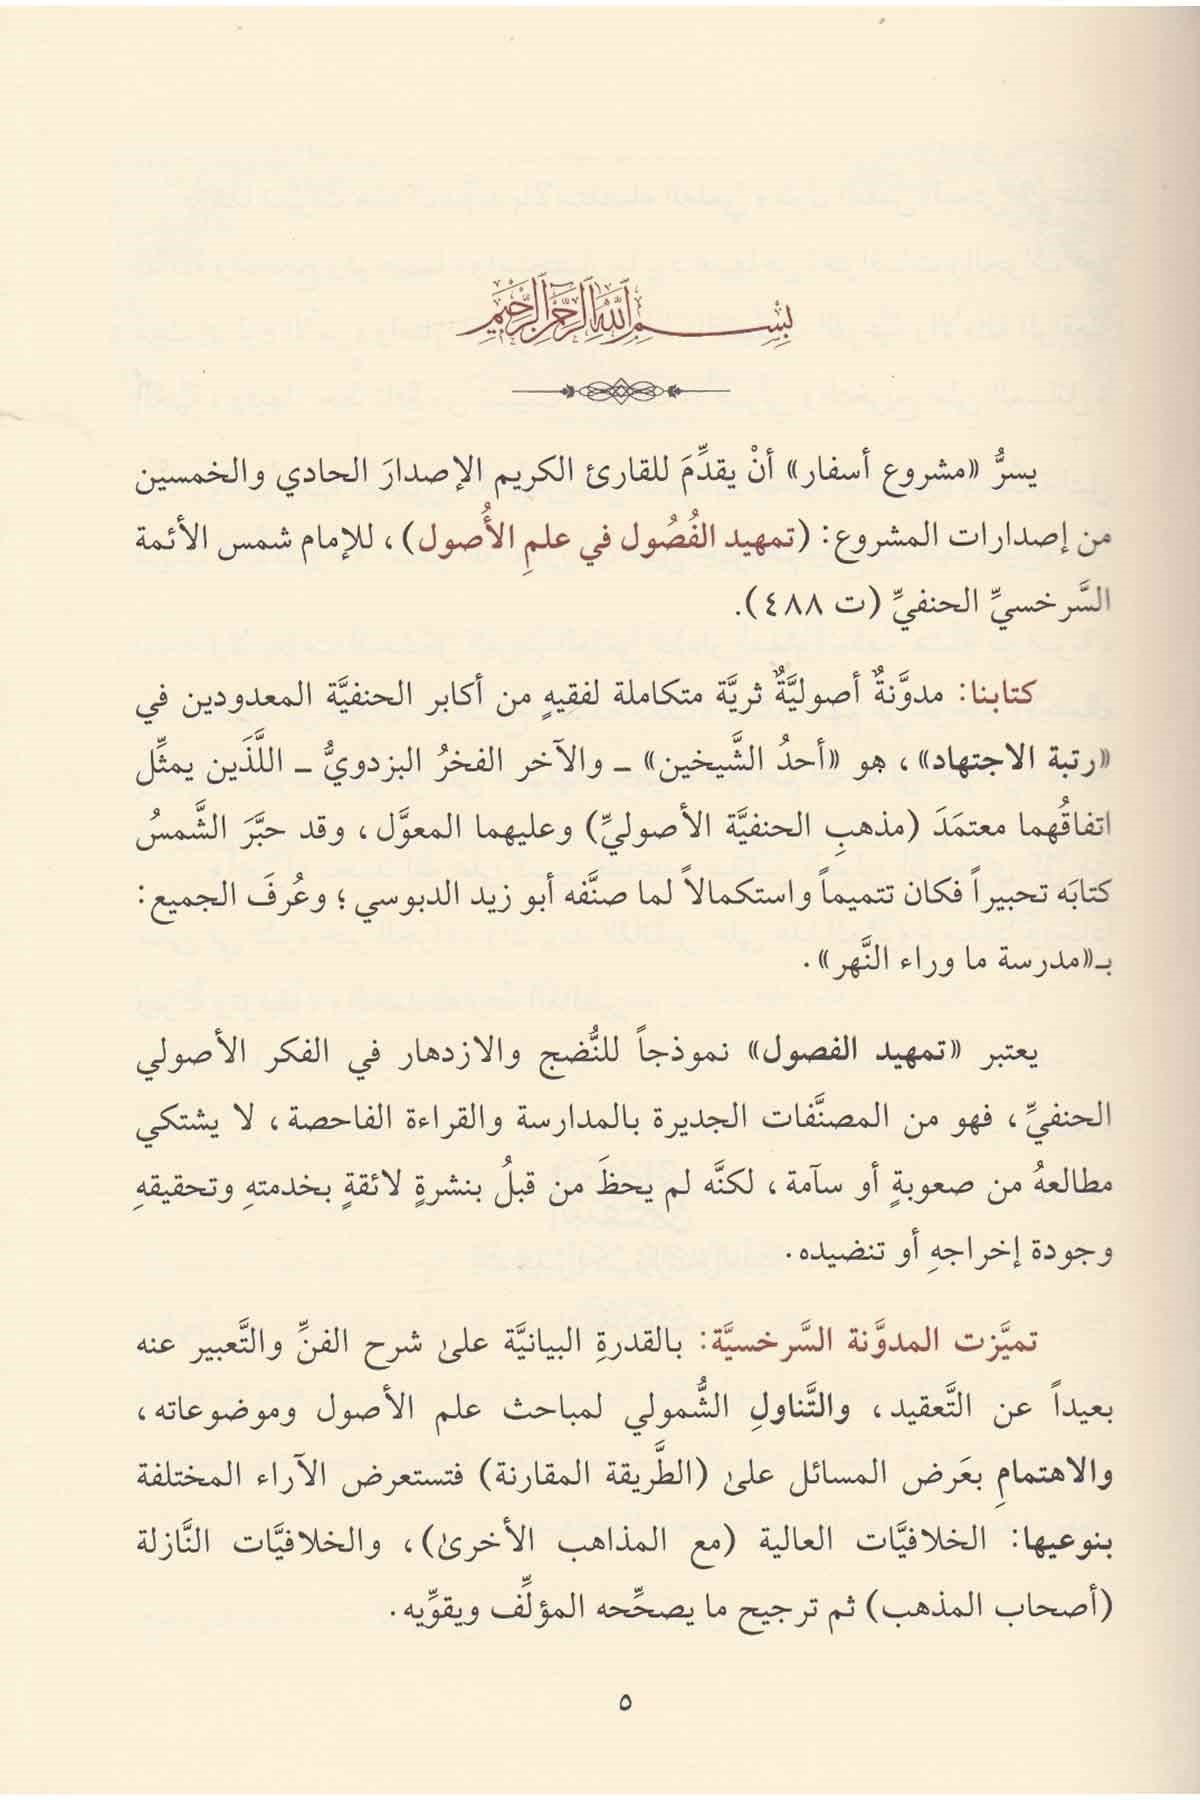 بِسْمِ اللَّهِ الرَّحْمَٰنِ الرَّحِيمِ
يسرُّ «مشروع أسفار» أنْ يقدِّمَ للقارئ الكريم الإصدارَ الحادي والخمسين
من إصدارات المشروع: (تمهيد الفُصُول في علمِ الأُصول)، للإمام شمس الأئمة
السَّرخسيِّ الحنفيِّ (ت ٤٨٨).
كتابنا: مدوَّنةٌ أصوليَّةٌ ثريَّة متكاملة لفقِيهٍ من أكابر الحنفيَّة المعدودين في
«رتبة الاجتهاد»، هو «أحدُ الشَّيخين» ـ والآخر الفخرُ البزدويُّ ـ اللَّذَين يمثِّل
اتفاقُهما معتمَدَ (مذهبِ الحنفيَّة الأصوليِّ) وعليهما المعوَّل، وقد حبَّرَ الشَّمسُ
كتابَه تحبيراً فكان تتميماً واستكمالاً لما صنَّفه أبو زيد الدبوسي؛ وعُرفَ الجميع:
بـ«مدرسة ما وراء النَّهر».
يعتبر «تمهيد الفصول» نموذجاً للنُّضج والازدهار في الفكر الأصولي
الحنفيِّ، فهو من المصنَّفات الجديرة بالمدارسة والقراءة الفاحصة، لا يشتكي
مطالعهُ من صعوبةٍ أو سآمة، لكنَّه لم يحظَ من قبلُ بنشرةٍ لائقةٍ بخدمتهِ وتحقيقهِ
وجودة إخراجهِ أو تنضيده.
تميَّزت المدوَّنة السَّرخسيَّة: بالقدرةِ البيانيَّة علىٰ شرح الفنِّ والتَّعبير عنه
بعيداً عن التَّعقيد، والتَّناولِ الشُّمولي لمباحث علم الأصول وموضوعاته،
والاهتمامِ بعَرض المسائل علىٰ (الطَّريقة المقارنة) فتستعرض الآراء المختلفة
بنوعيها: الخلافيَّات العالية (مع المذاهب الأخرىٰ)، والخلافيَّات النَّازلة
(أصحاب المذهب) ثم ترجيح ما يصحِّحه المؤلِّف ويقوِّيه.
٥